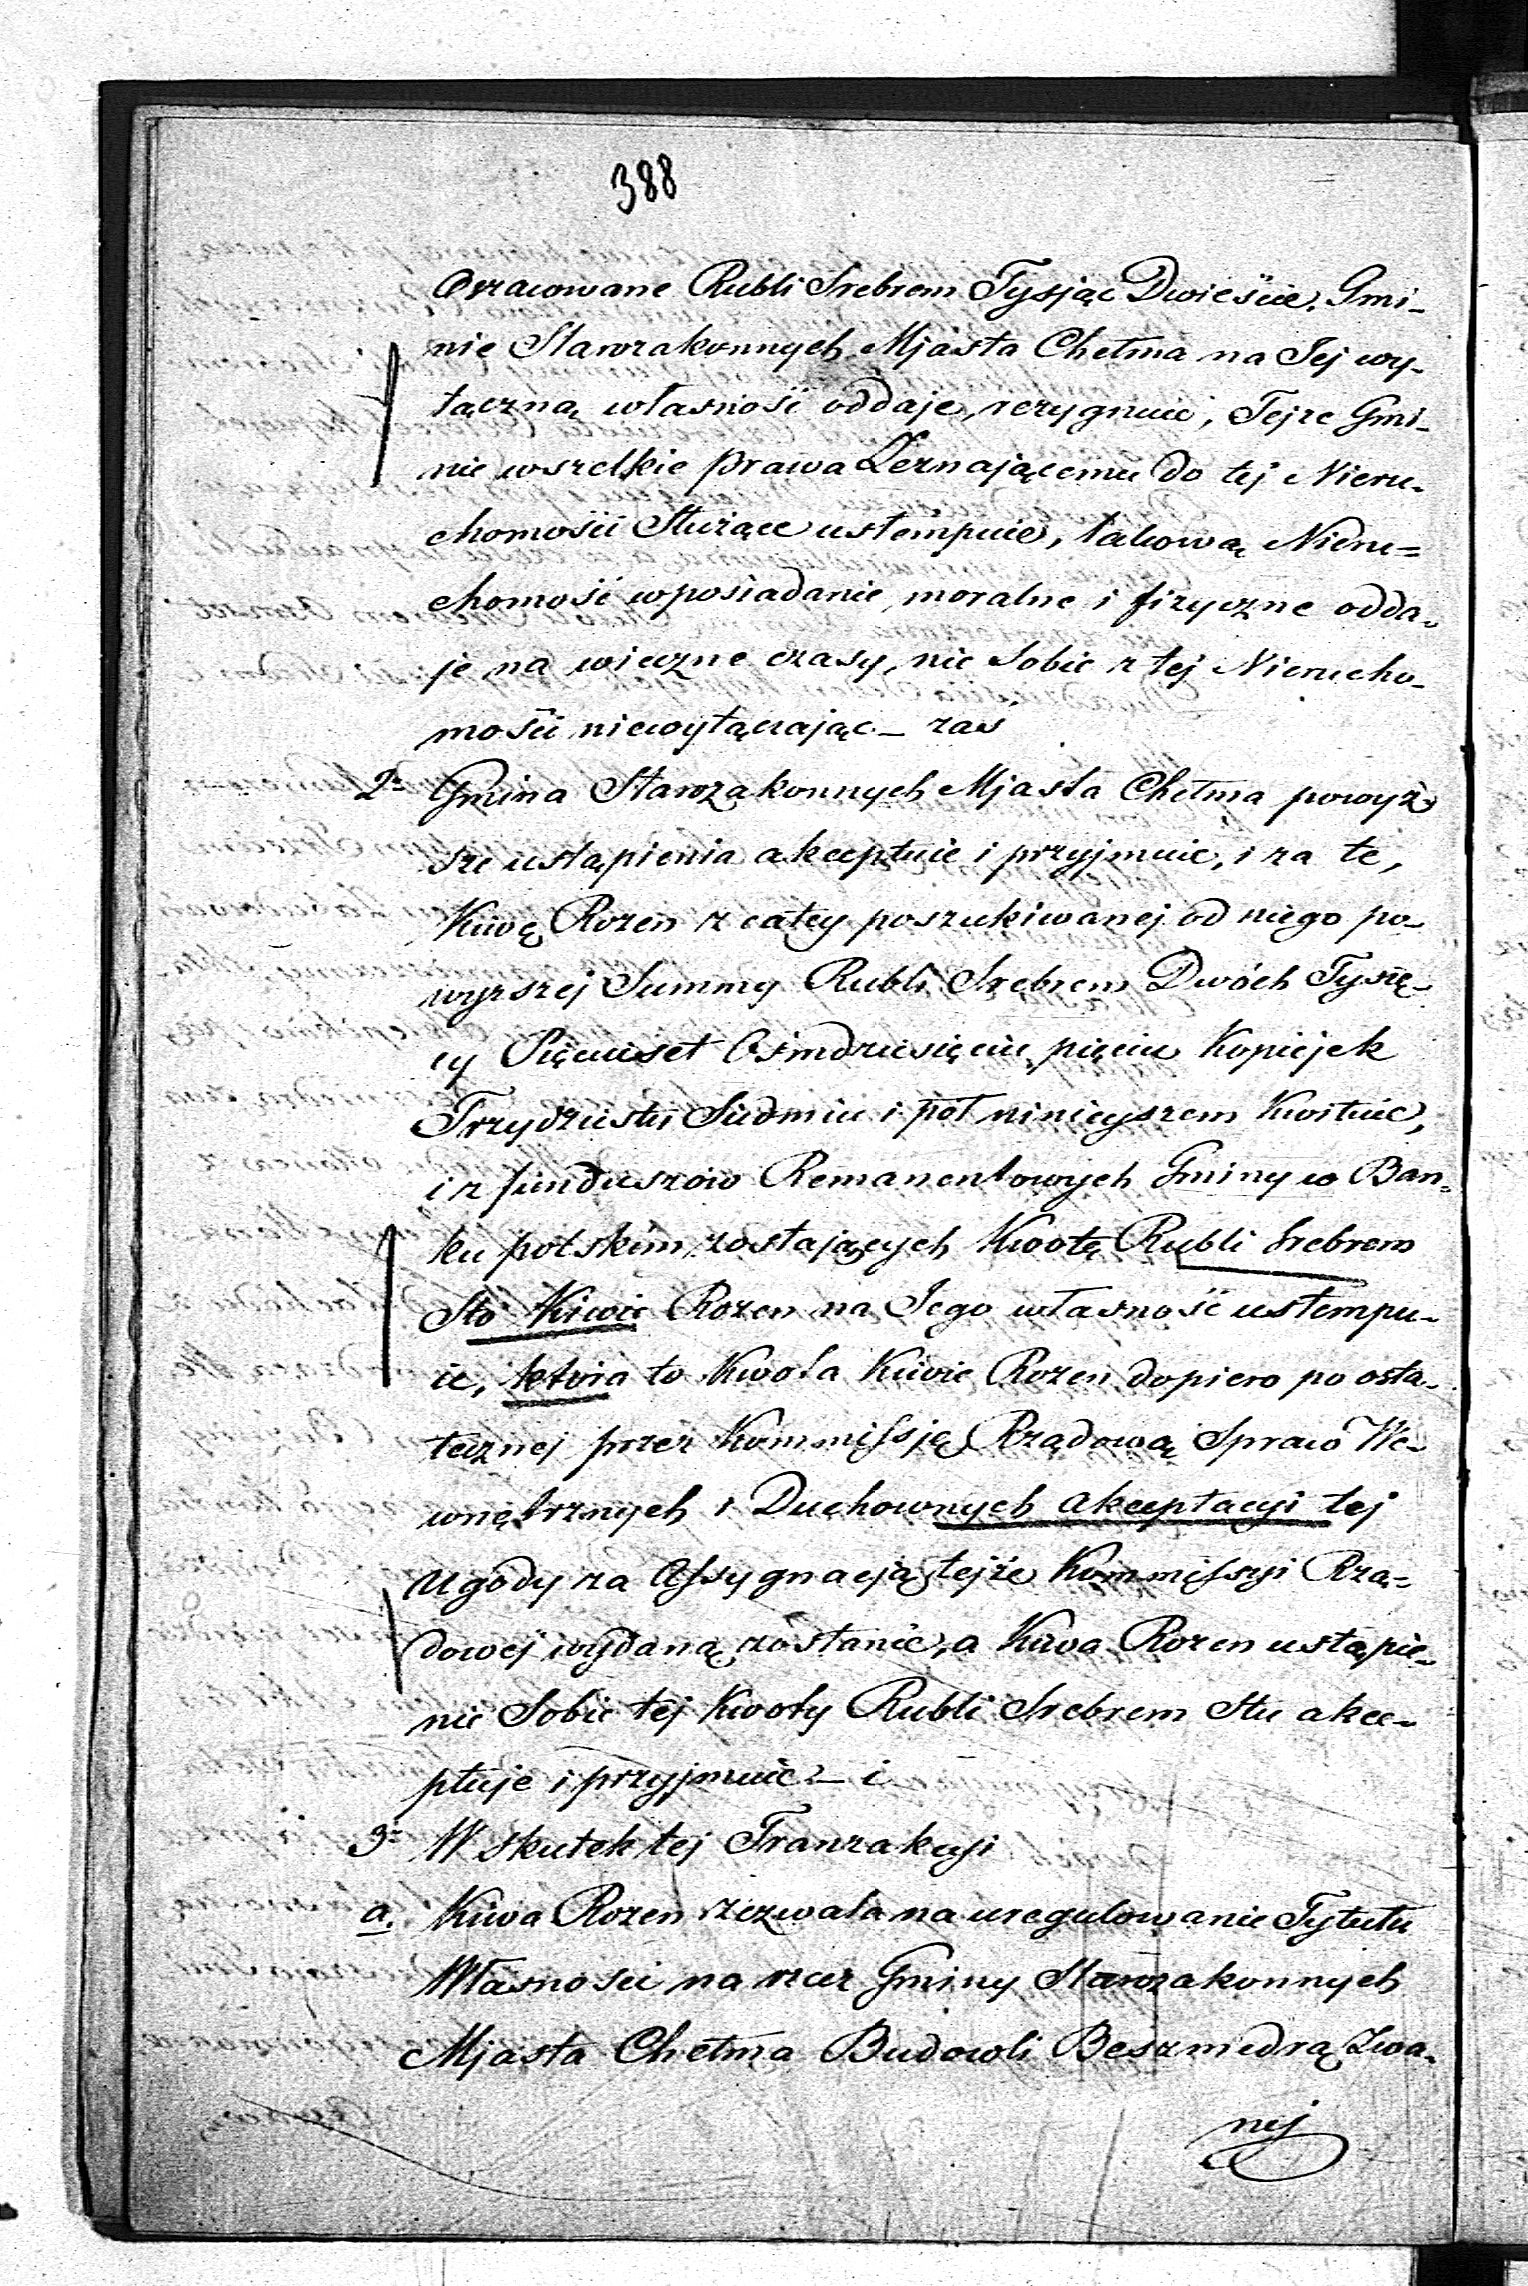 388
Oszacowane Rubli Srebrem Tysjąc Dwieście, Gmi-
nie Starozakonnych Mjasta Chełma na Jej wy-
łączną własność oddaje, rezygnuie, Tejże Gmi-
nie wszelkie prawa Zeznającemu do tej Nieru-
chomości Służące ustempuie, takową Nieru=
chomość w posiadanie moralne i fizyczne odda-
je na wieczne czasy, nic Sobie z tej Nierucho-
mości niewyłączając – zaś
2º Gmina Starozakonnych Mjasta Chełma powyż
sze ustąpienia akceptuie i przyjmuie, i za te,
Kiwę Rozen z całey poszukiwanej od niego po-
wyższej Summy Rubli Srebrem Dwóch Tysię-
cy Pięciuset Ośmdziesięciu pięciu Kopiejek
Trzydziestu Siedmiu i pół niniejszem Kwituie,
i z funduszów Remanentowych Gminy w Ban-
ku polskim zostających Kwotę Rubli Srebrem
Sto Kiwie Rozen na Jego własność ustempu-
ie, która to Kwota Kiwie Rozen dopiero po osta-
tecznej przez Kommissję Rządową Spraw We-
wnętrznych i Duchownych akceptacyi tej
Ugody za Assygnacją tejże Kommissyi Rzą-
dowej wydaną zostanie, a Kiwa Rozen ustąpie-
nie Sobie tej Kwoty Rubli Srebrem Stu akce-
ptuje i przyjmuie – i
3º W skutek tej Tranzakcyi
a. Kiwa Rozen zezwala na uregulowanie Tytułu
Własności na rzecz Gminy Starozakonnych
Mjasta Chełma Budowli Beszmedrą Zwa-
nej